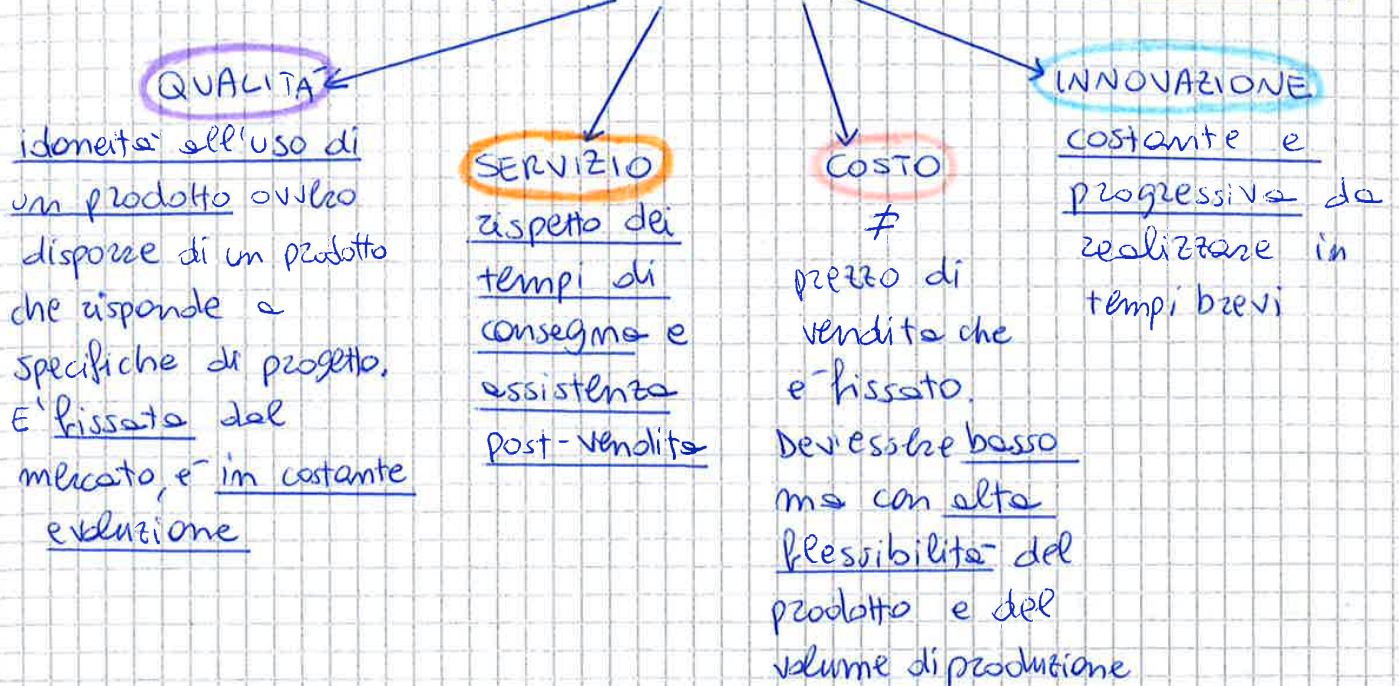 QUALITÀ
idoneità all'uso di
un prodotto ovvero
disporre di un prodotto
che risponde a
specifiche di progetto.
E' fissata dal
mercato, è in costante
evoluzione
SERVIZIO
rispetto dei
tempi di
consegna e
assistenza
post-vendita
COSTO
≠
prezzo di
vendita che
è fissato.
Dev'essere basso
ma con alta
flessibilità del
prodotto e del
volume di produzione
INNOVAZIONE
costante e
progressiva da
realizzare in
tempi brevi